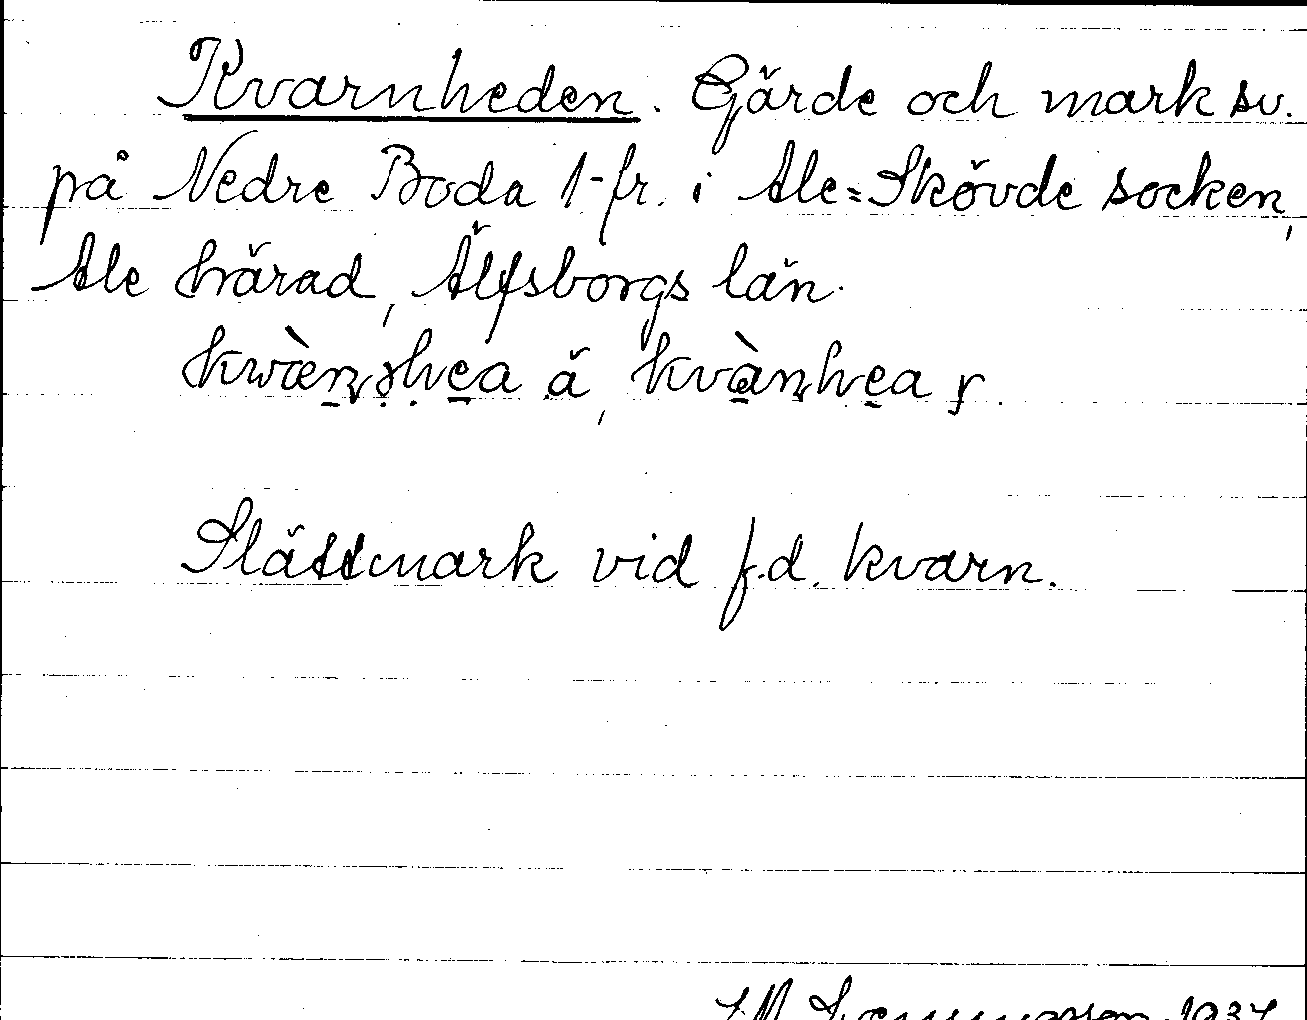 Kvarnheden. Gärde och mark sv.
på Nedre Boda 1-fr. i Ale=Skövde socken,
Ale härad, Älfsborgs län.
ä, kvànhea
Slättmark vid f.d. kvarn.
1937